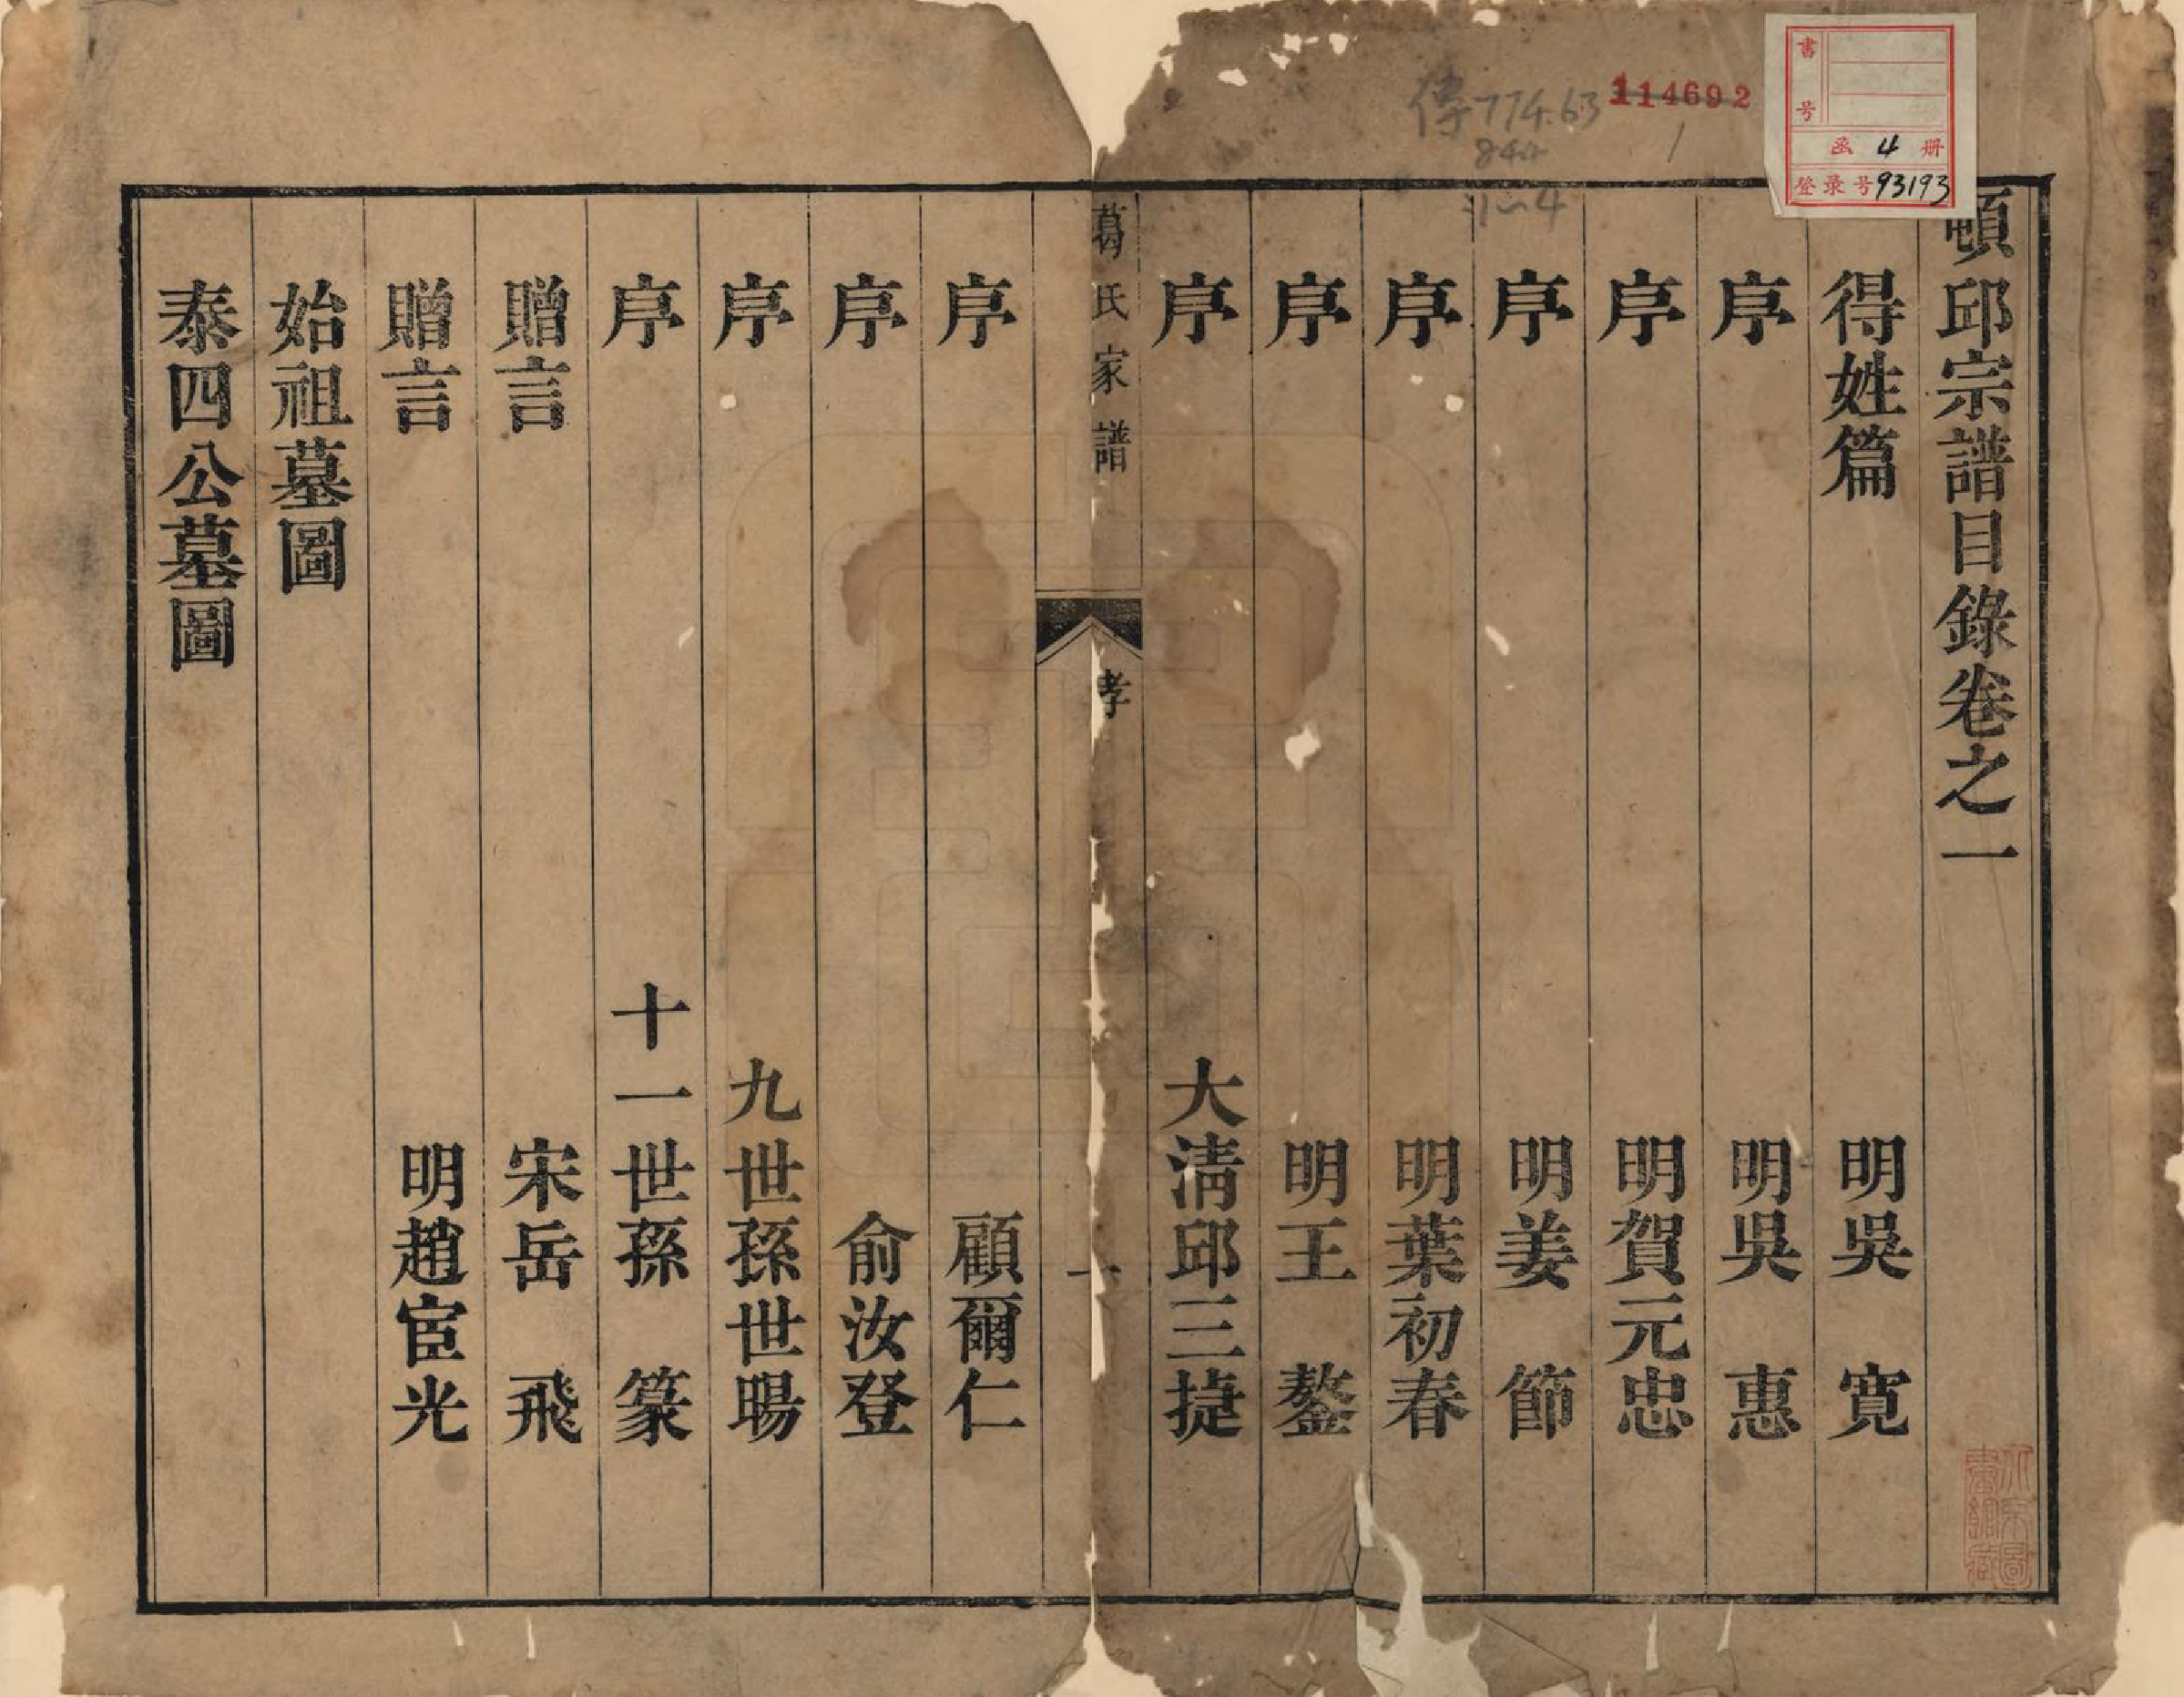 頓邱宗譜目錄卷之一
得姓篇 明吳 寬
序 明吳 惠
序 明賀元忠
序 明姜 節
序 明葉初春
序 明王 鏊
序 大清邱三捷
葛氏家譜 孝 一
序 顧爾仁
序 俞汝登
序 九世孫世暘
序 十一世孫 篆
贈言 宋岳 飛
贈言 明趙宧光
始祖墓圖
泰四公墓圖
傳774.63
844
1
1~4
114692
書号
函 4 册
登录号93193